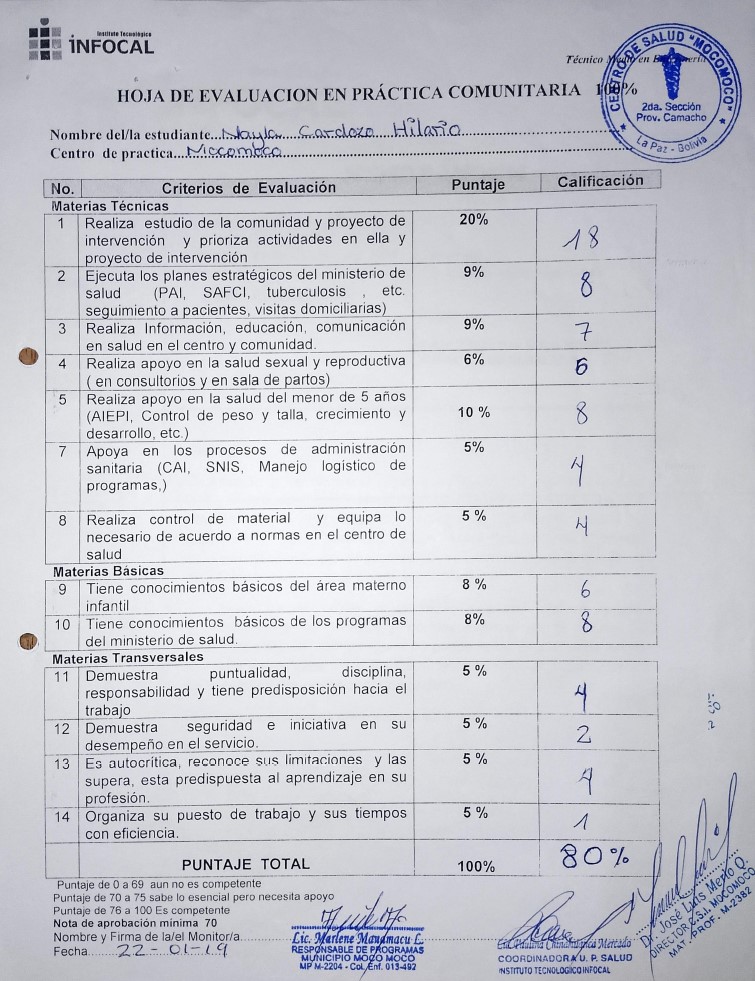 Instituto Tecnológico
INFOCAL
Técnico Medio en Enfermería
HOJA DE EVALUACION EN PRÁCTICA COMUNITARIA 100%
CENTRO DE SALUD "MOCOMOCO"
2da. Sección
Prov. Camacho
La Paz - Bolivia
Nombre del/la estudiante...Nayla Cardozo Hilario
Centro de practica...Mocomoco
No. Criterios de Evaluación Puntaje Calificación
Materias Técnicas
1 Realiza estudio de la comunidad y proyecto de 20% 18
intervención y prioriza actividades en ella y
proyecto de intervención
2 Ejecuta los planes estratégicos del ministerio de 9% 8
salud (PAI, SAFCI, tuberculosis , etc.
seguimiento a pacientes, visitas domiciliarias)
3 Realiza Información, educación, comunicación 9% 7
en salud en el centro y comunidad.
4 Realiza apoyo en la salud sexual y reproductiva 6% 6
( en consultorios y en sala de partos)
5 Realiza apoyo en la salud del menor de 5 años 10 % 8
(AIEPI, Control de peso y talla, crecimiento y
desarrollo, etc.)
7 Apoya en los procesos de administración 5% 4
sanitaria (CAI, SNIS, Manejo logístico de
programas,)
8 Realiza control de material y equipa lo 5 % 4
necesario de acuerdo a normas en el centro de
salud
Materias Básicas
9 Tiene conocimientos básicos del área materno 8 % 6
infantil
10 Tiene conocimientos básicos de los programas 8% 8
del ministerio de salud.
Materias Transversales
11 Demuestra puntualidad, disciplina, 5 % 4
responsabilidad y tiene predisposición hacia el
trabajo
12 Demuestra seguridad e iniciativa en su 5 % 2
desempeño en el servicio.
13 Es autocrítica, reconoce sus limitaciones y las 5 % 4
supera, esta predispuesta al aprendizaje en su
profesión.
14 Organiza su puesto de trabajo y sus tiempos 5 % 1
con eficiencia.
PUNTAJE TOTAL 100% 80%
Puntaje de 0 a 69 aun no es competente
Puntaje de 70 a 75 sabe lo esencial pero necesita apoyo
Puntaje de 76 a 100 Es competente
Nota de aprobación mínima 70
Nombre y Firma de la/el Monitor/a
Fecha 22-01-19
Lic. Marlene Mamamacu L.
RESPONSABLE DE PROGRAMAS
MUNICIPIO MOCO MOCO
MP M-2204 - Col. Enf. 013-492
Lic. Paulina Mercado
COORDINADORA U. P. SALUD
INSTITUTO TECNOLOGICO INFOCAL
Dr. José Luis Merlo Q.
DIRECTOR C.S.I. MOCOMOCO
MAT. PROF. M-2382